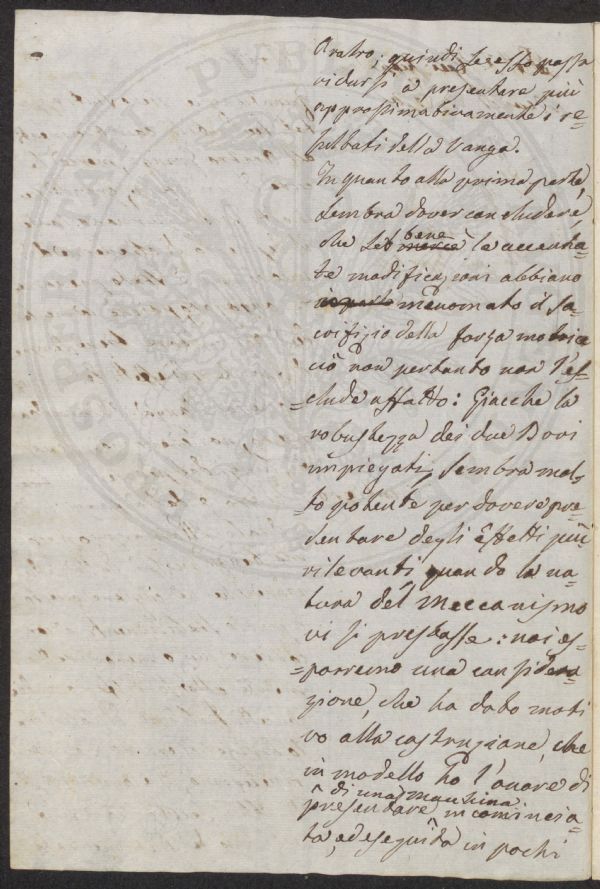 Aratro; quindi lo stesso possa
ridursi a presentare più
approssimativamente i re=
sultati della Vanga.
In quanto alla prima parte,
sembra dover concludere
bene
che seb merce le accenna=
te modificazioni abbiano
in parte menomato il sa=
crifizio della forza motrice
ciò non pertanto non l'es=
=clude affatto: Giacchè la
robustezza dei due Bovi
impiegati, sembra mol=
to potente per dovere pre=
sentare degli effetti più
rilevanti quando la na=
tura del meccanismo
vi si prestasse: noi es=
=porremo una considera
zione, che ha dato moti
vo alla costruzione, che
in modello ho l'onore di
di una macchina
presentare, incomincia=
ta, ed eseguita in pochi
PVB
PROSPERITATI